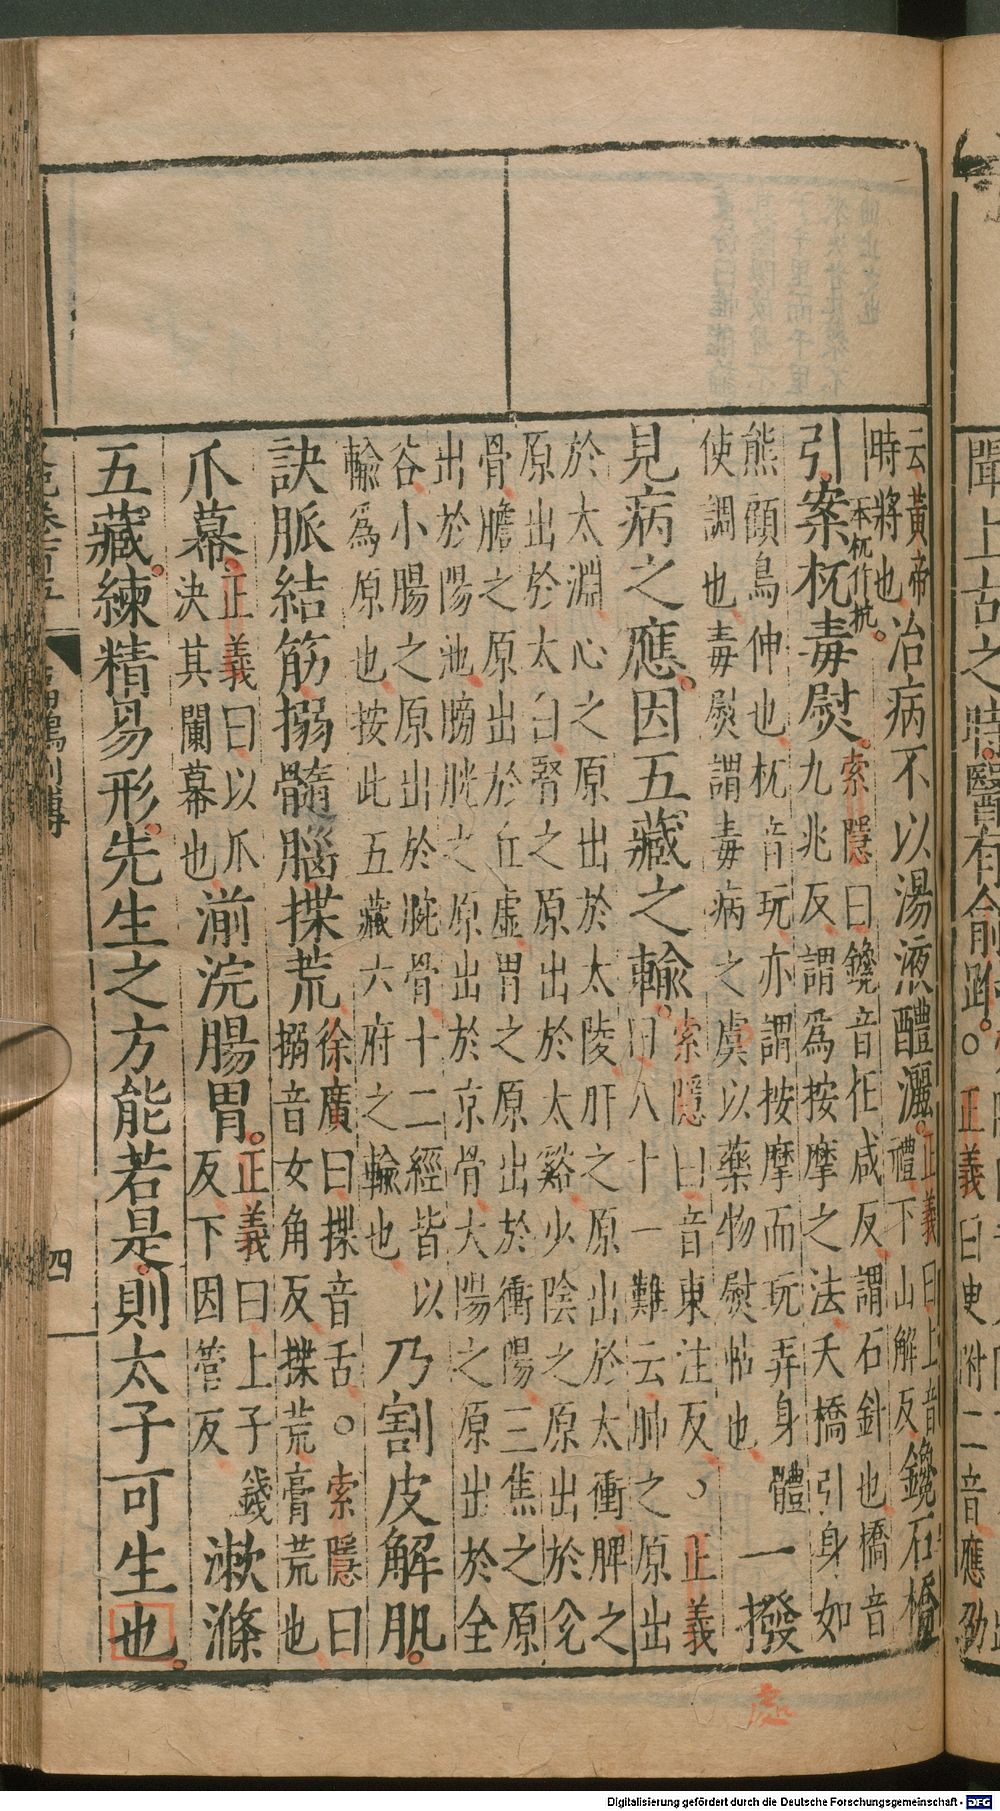 聞上古之時醫有俞跗。○正義曰臾附二音應劭
云黃帝
時將也。
治病不以湯液醴灑。
正義曰上音
禮下山解反
鑱石橋
引案杌毒熨。
一本杌作抗
索隱曰鑱音仕咸反謂石針也橋音
九兆反謂為按摩之法夭橋引身如
熊顧鳥伸也杌音玩亦謂按摩而玩弄身體
使調也毒熨謂毒病之處以藥物熨帖也
一撥
見病之應。因五藏之輸。
索隱曰音東注反。正義
曰八十一難云肺之原出
於太淵心之原出於太陵肝之原出於太衝脾之
原出於太白腎之原出於太谿少陰之原出於兌
骨膽之原出於丘虛胃之原出於衝陽三焦之原
出於陽池膀胱之原出於京骨大陽之原出於全
谷小腸之原出於腕骨十二經皆以
輸爲原也按此五藏六府之輸也
乃割皮解肌。
訣脈結筋搦髓腦揲荒
徐廣曰揲音舌。索隱曰
搦音女角反揲荒膏荒也
爪幕
正義曰以爪
決其闌幕也
湔浣腸胃。
正義曰上子踐
反下因管反
漱滌
五藏。練精易形。先生之方能若是則太子可生也。
四
處
Digitalisierung gefördert durch die Deutsche Forschungsgemeinschaft - DFG